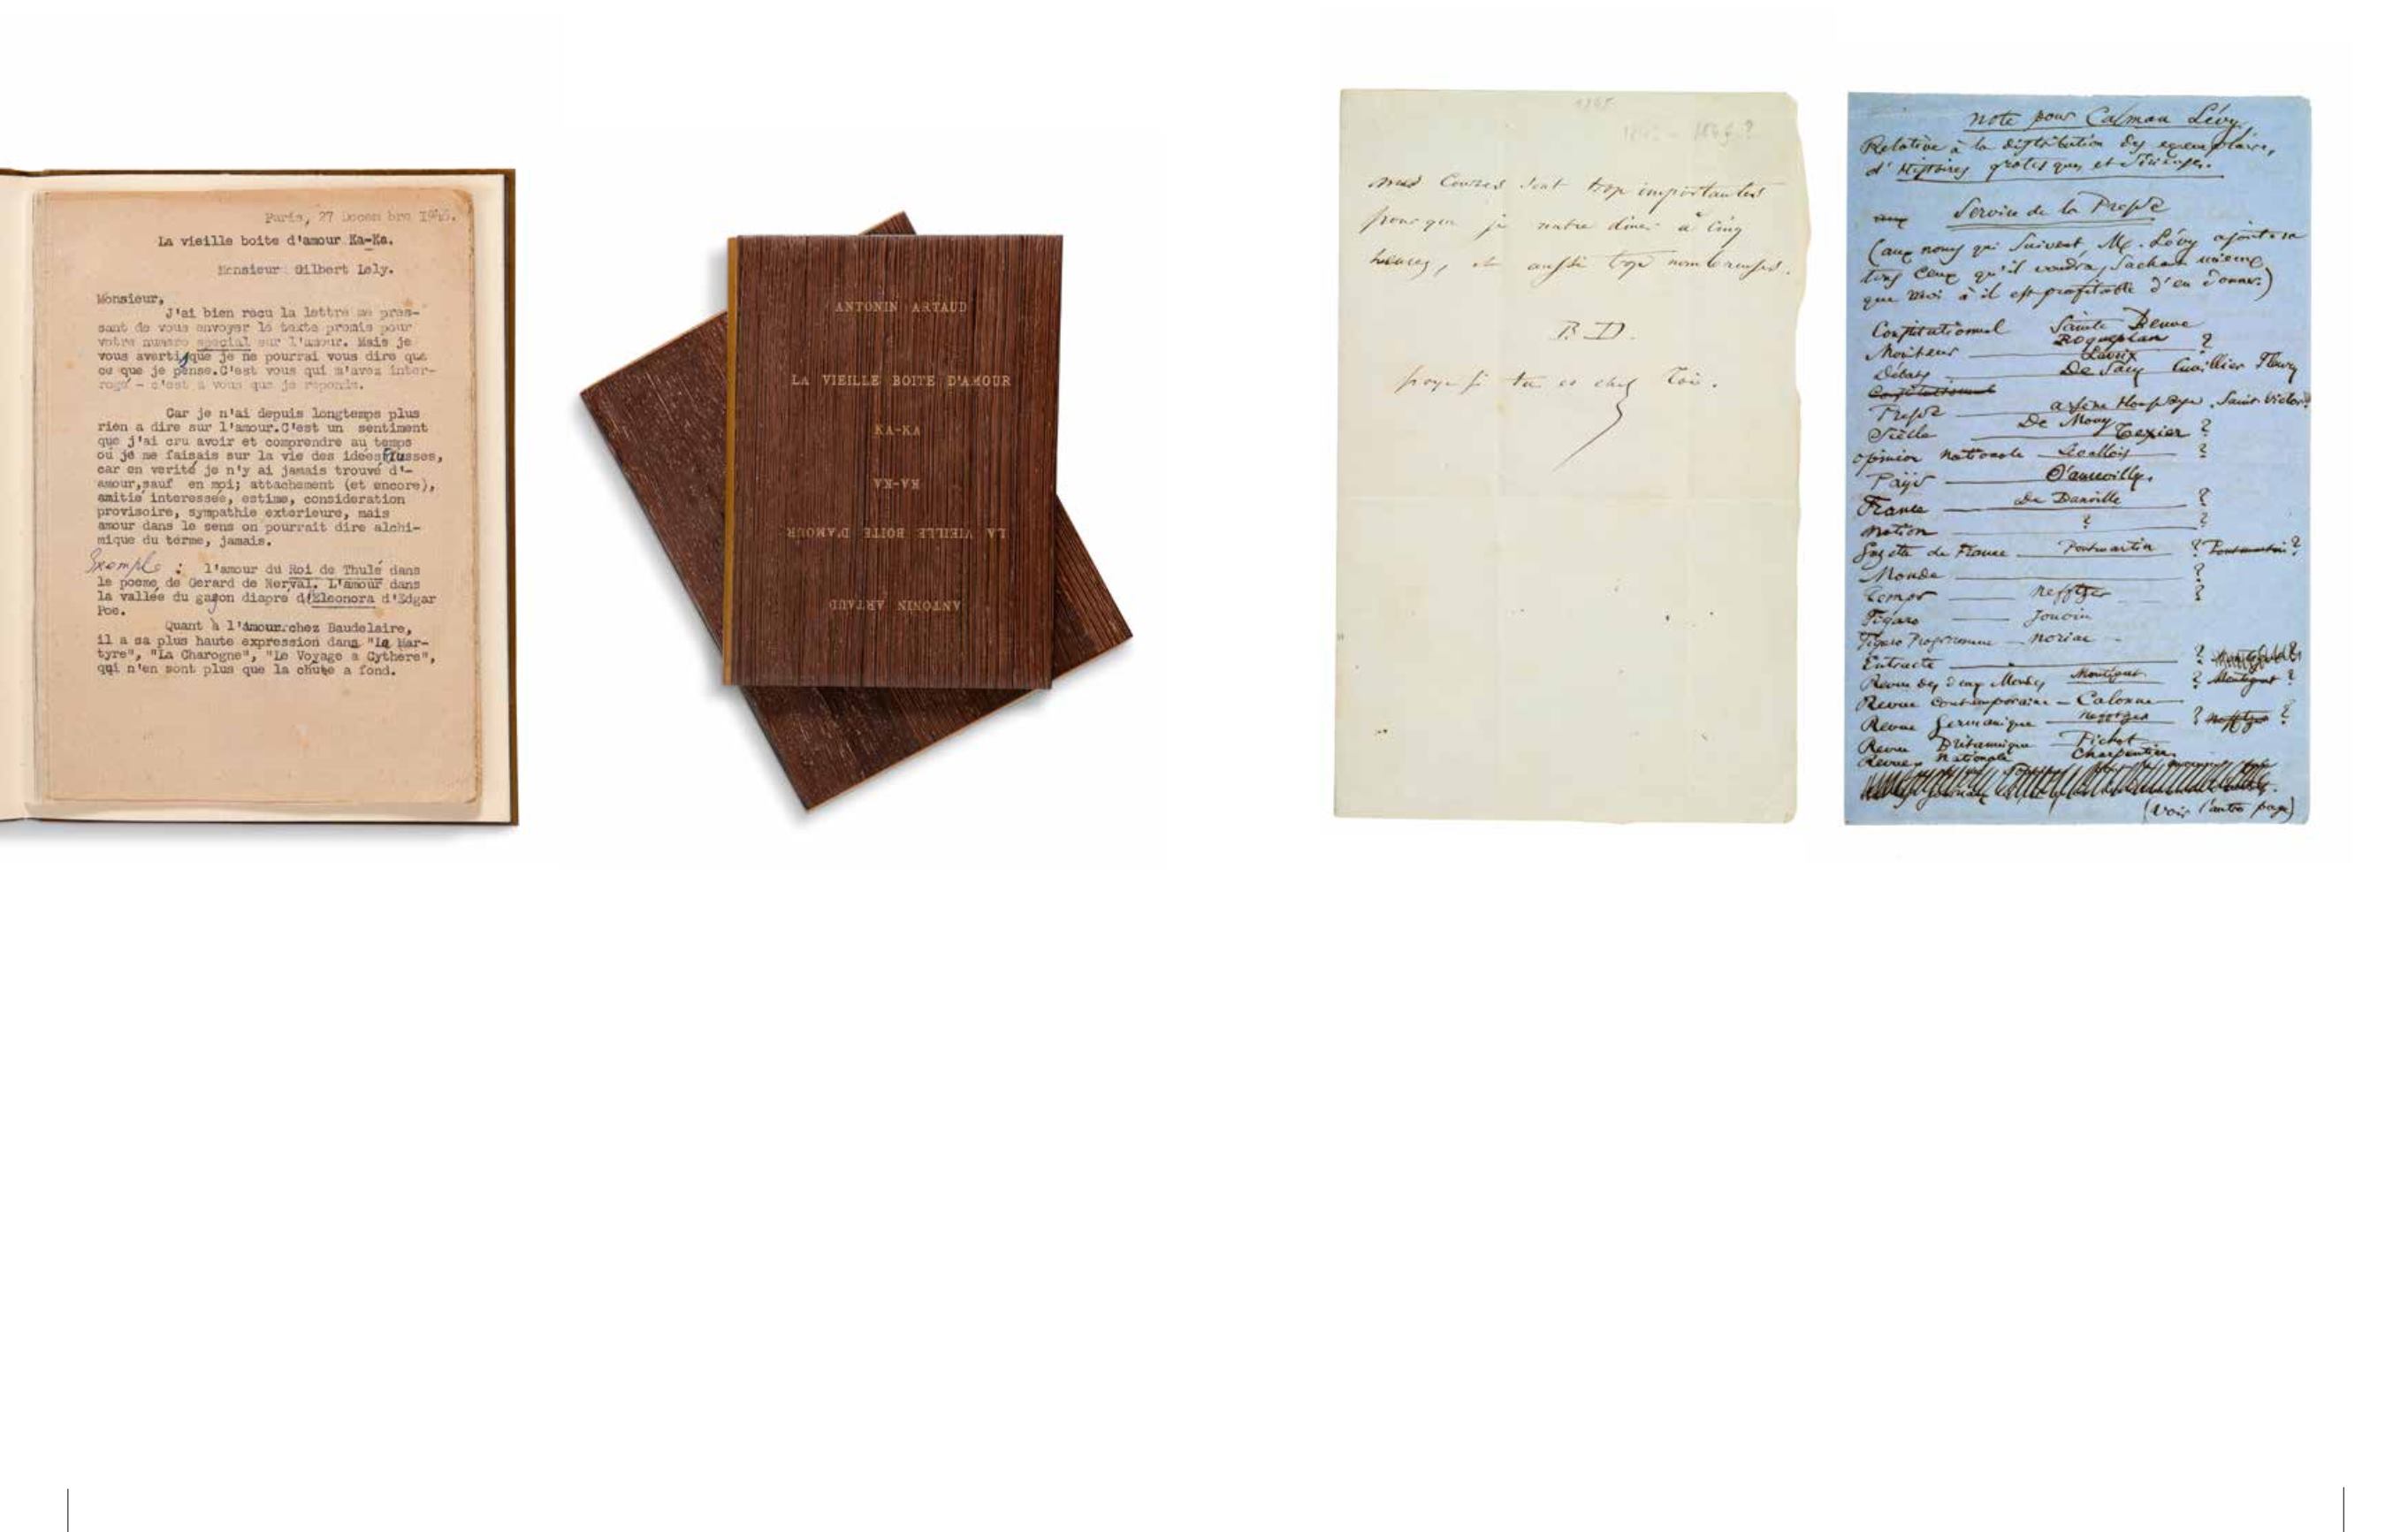 Paris, 27 Decembre 1945.
La vieille boite d'amour Ka-Ka.
Monsieur Gilbert Lely.
Monsieur,
J'ai bien recu la lettre me pres-
sant de vous envoyer le texte promis pour
votre numero special sur l'amour. Mais je
vous avertis que je ne pourrai vous dire que
ce que je pense.C'est vous qui m'avez inter-
rogé - c'est a vous que je reponds.
Car je n'ai depuis longtemps plus
rien a dire sur l'amour.C'est un sentiment
que j'ai cru avoir et comprendre au temps
ou je me faisais sur la vie des idées fausses,
car en verité je n'y ai jamais trouvé d'-
amour,sauf en moi; attachement (et encore),
amitié interessée, estime, consideration
provisoire, sympathie exterieure, mais
amour dans le sens on pourrait dire alchi-
mique du terme, jamais.
Exemple : l'amour du Roi de Thulé dans
le poeme de Gerard de Nerval. L'amour dans
la vallée du gazon diapré d'Eleonora d'Edgar
Poe.
Quant à l'amour chez Baudelaire,
il a sa plus haute expression dans "La Mar-
tyre", "La Charogne", "Le Voyage a Cythere",
qui n'en sont plus que la chute a fond.
ANTONIN ARTAUD
LA VIEILLE BOITE D'AMOUR
KA-KA
KA-KA
LA VIEILLE BOITE D'AMOUR
ANTONIN ARTAUD
mes Courses sont trop importantes
pour que je rentre diner à Cinq
heures, et aussi trop nombreuses.
B. D.
si tu es chez Toi.
note pour Calman Lévy
Relative à la distribution des exemplaires
d'Histoires grotesques et Sérieuses.
aux Service de la Presse
(aux noms qui suivent, M. Lévy ajoutera
tous ceux qu'il voudra, sachant mieux
que moi à il est profitable d'en donner.)
Constitutionnel Sainte Beuve
Moniteur Roqueplan ?
Lavoix
Débats De Sacy Cuvillier Fleury
Constitutionnel
Presse arsène Houssaye. Saint-Victor?
Siècle De Mouy Texier ?
opinion nationale Levallois ?
Pays D'aurevilly.
France de ?
Nation ? ?
Gazette de France Pontmartin ? Pontmartin ?
Monde ?
Temps nefftzer ?
Figaro Jouvin
Figaro Programme noriac
Entracte ?
Revue des deux Mondes Montégut ? Montégut ?
Revue Contemporaine - Calonne
Revue Germanique nefftzer ? nefftzer ?
Revue Britannique Pichot
Revue Nationale Charpentier
(voir l'autre page)